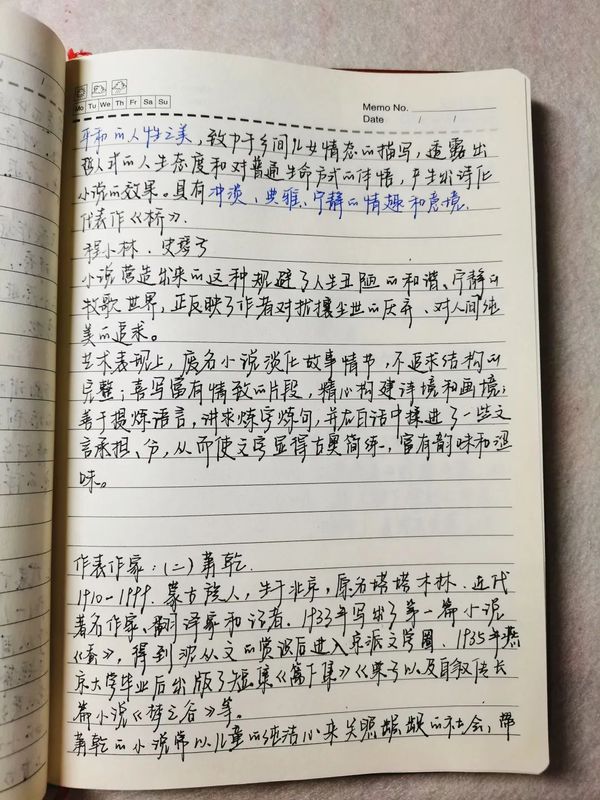 Mo Tu We Th Fr Sa Su
Memo No.
Date / /
平和的人性之美，致力于乡间儿女情态的描写，透露出
哲人式的人生态度和对普通生命方式的体悟，产生出诗化
小说的效果。具有冲淡、典雅、宁静的情趣和意境.
代表作《桥》.
程小林. 史琴子
小说营造出来的这种规避了人生丑陋的和谐、宁静的
牧歌世界，正反映了作者对扰攘尘世的厌弃、对人间纯
美的追求。
艺术表现上，废名小说淡化故事情节，不追求结构的
完整；喜写富有情致的片段，精心构建诗境和画境；
善于提炼语言，讲求炼字炼句，并在白话中揉进了一些文
言承担、分，从而使文字显得古奥简练，富有韵味和涩
味。
作表作家：(二) 萧乾.
1910-1999 蒙古族人，生于北京，原名塔塔木林. 近代
著名作家、翻译家和记者. 1933年写出了第一篇小说
《蚕》，得到沈从文的赏识后进入京派文学圈. 1935年燕
京大学毕业后出版了短集《篱下集》《栗子以及自叙传长
篇小说《梦之谷》等。
萧乾的小说常以儿童的纯洁心来关照龌龊的社会，